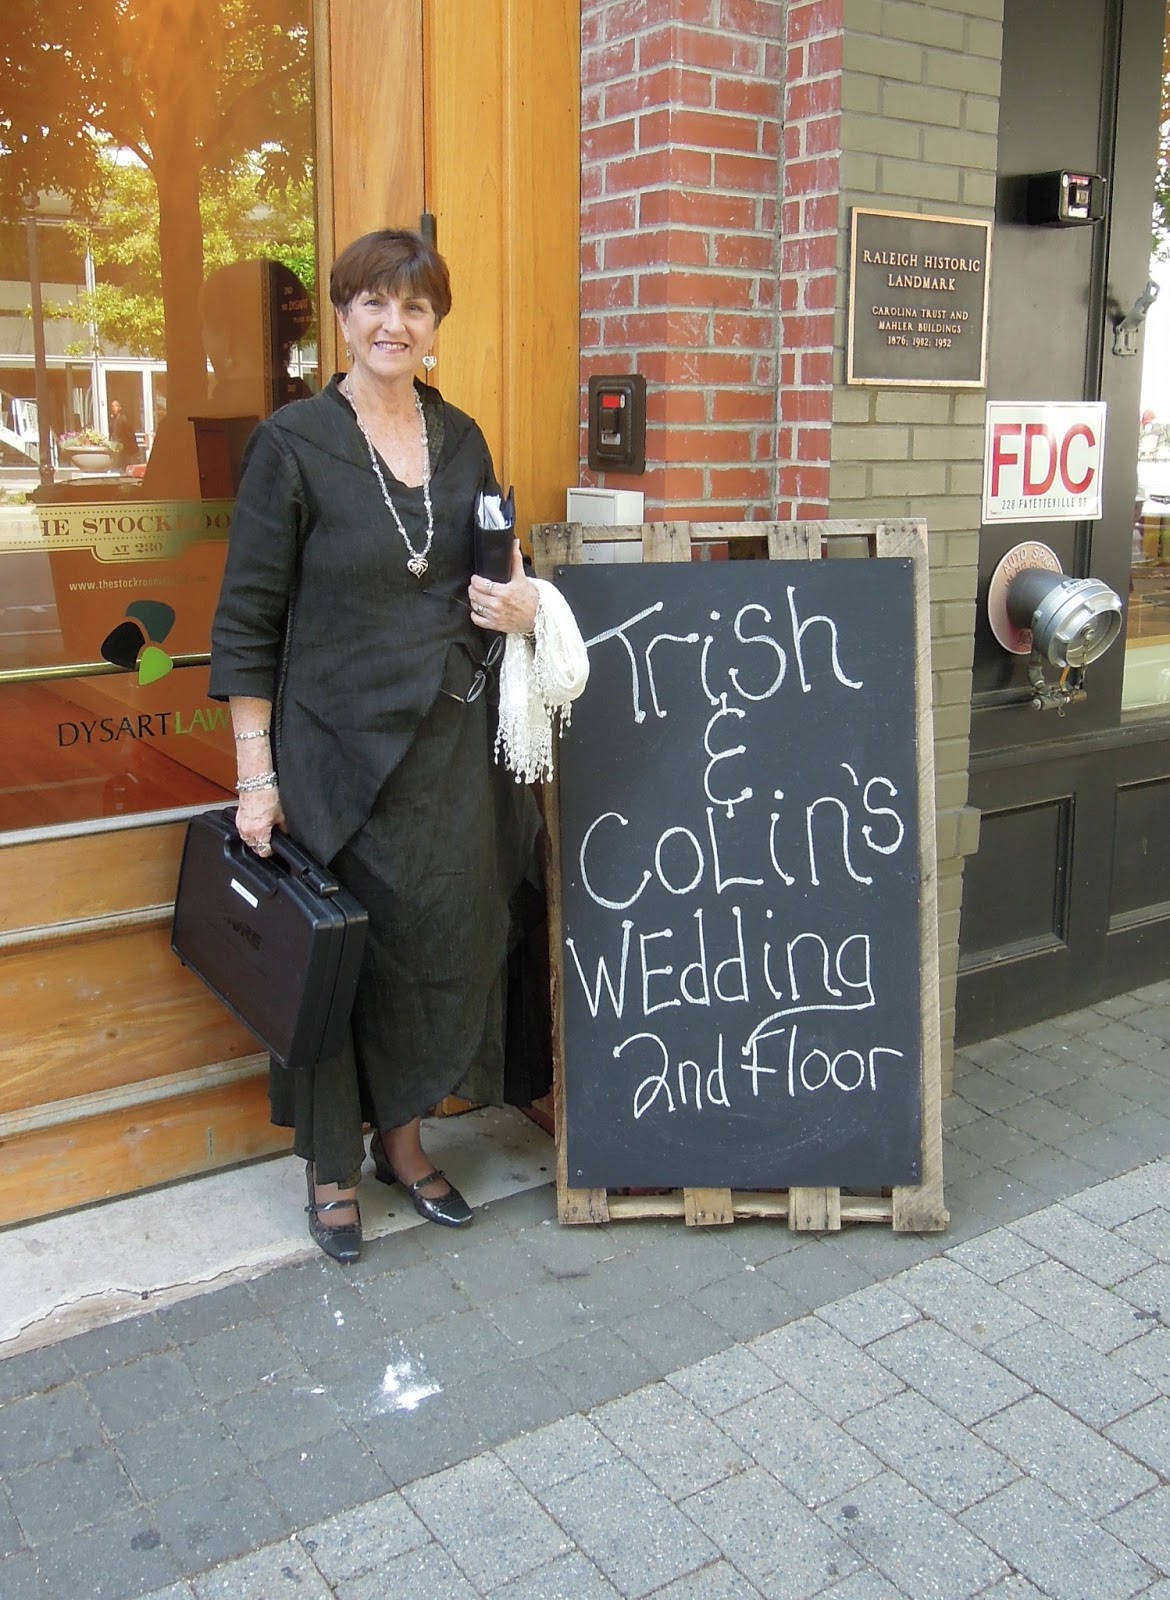 THE STOCKROO
AT 230
www.thestockroom
DYSARTLAW
DYSART
RALEIGH HISTORIC
LANDMARK
CAROLINA TRUST AND
MAHLER BUILDINGS
1876; 1902; 1952
FDC
228 FAYETTEVILLE ST
AUTO SPKR
Trish
&
Colin's
WEdding
2nd Floor